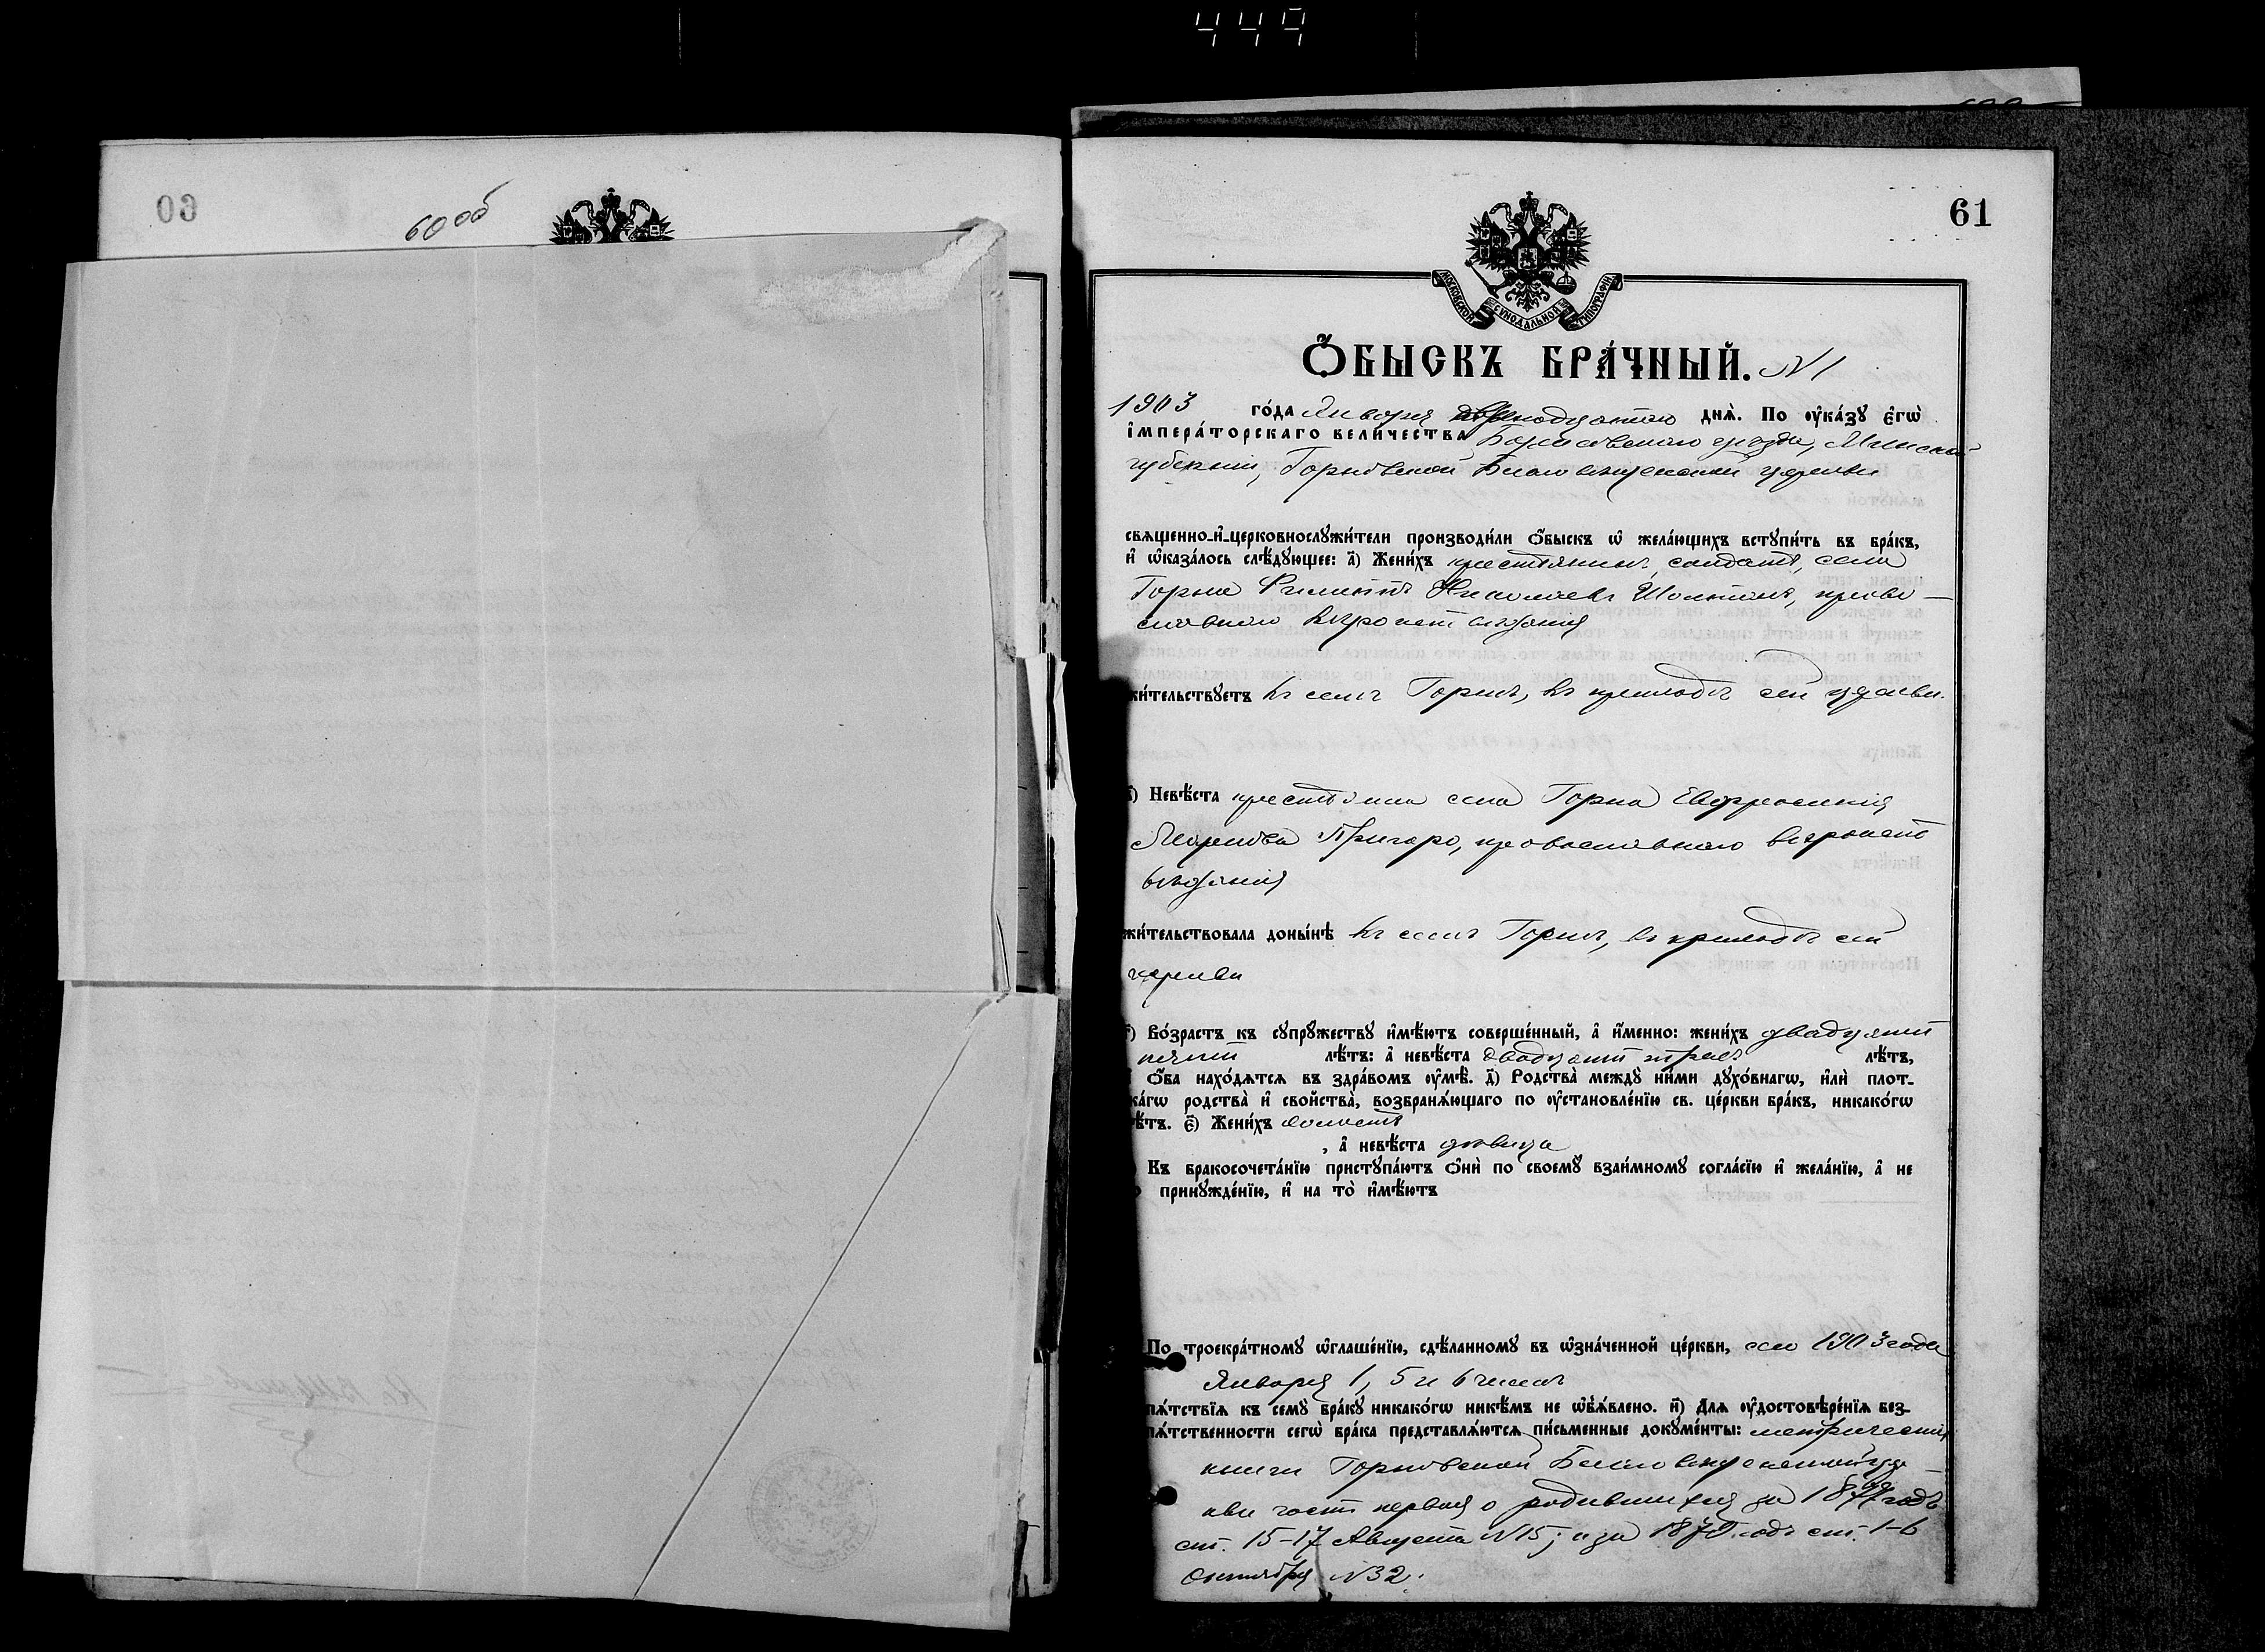 449
60об
61
МОСКОВСКОЙ СѴНОДАЛЬНОЙ ТИПОГРАФІИ
Ѻ҆БЫСКЪ БРА́ЧНЫЙ. N 1
1903 го́да Января дня̀. По ᲂу҆ка́зꙋ є҆гѡ̀
і҆мпера́торскагѡ вели́чества, Борисовскаго уѣзда, Минской
губерніи, Горновской Благовѣщенской церкви
свѧщенно-и҆-церковнослꙋжи́тели производи́ли ѻ҆́быскъ ѡ҆ жела́ющихъ встꙋпи́ть въ бра́къ,
и҆ ѡ҆каза́лось слѣ́дꙋющее: а҃) Жени́хъ крестьянинъ, солдатъ, села
Горна Филиппъ Николаевъ, право-
славнаго вѣроисповѣданія
жи́тельствꙋетъ въ селѣ Горнѣ, въ приходѣ сей церкви.
в҃) Невѣ́ста крестьянка села Горна Евфросинія
Маркова, православнаго вѣроиспо-
вѣданія
жи́тельствовала доны́нѣ въ селѣ Горнѣ, въ приходѣ сей
церкви
г҃) Во́зрастъ къ сꙋпрꙋ́жествꙋ и҆мѣ́ютъ соверше́нный, а҆ и҆́менно: жени́хъ двадцати
пяти лѣ́тъ: а҆ невѣ́ста двадцати трехъ лѣ́тъ,
и҆ ѻ҆́ба нахо́дѧтсѧ въ здра́вомъ ᲂу҆мѣ̀. д҃) Родства̀ междꙋ̀ ни́ми дꙋхо́внагѡ, и҆лѝ плот-
ска́гѡ родства̀ и҆ свойства̀, возбранѧ́ющаго по ᲂу҆становле́нїю св. це́ркви бра́къ, никако́гѡ
нѣ́тъ. є҃) Жени́хъ холостъ
, а҆ невѣ́ста дѣвица
Къ бракосочета́нїю пристꙋпа́ютъ ѻ҆нѝ по своемꙋ̀ взаи́мномꙋ согла́сїю и҆ жела́нїю, а҆ не
по принꙋжде́нїю, и҆ на то̀ и҆мѣ́ютъ
По троекра́тномꙋ ѡ҆глаше́нїю, сдѣ́ланномꙋ въ ѡ҆зна́ченной це́ркви, сего 1903 года
Января 1, 5 и 6 чиселъ
пѧ́тствїѧ къ семꙋ̀ бра́кꙋ никако́гѡ никѣ́мъ не ѡ҆б̾ѧ́влено. и҃) Длѧ ᲂу҆достовѣре́нїѧ без-
пѧ́тственности сегѡ̀ бра́ка представлѧ́ютсѧ пи́сьменные докꙋме́нты: метрическія
книги Горновской Благовѣщенской цер-
кви часть первая о родившихся за годъ
ст. 15-17 Августа N 15; и за годъ ст. 1-6
Октября N 32.